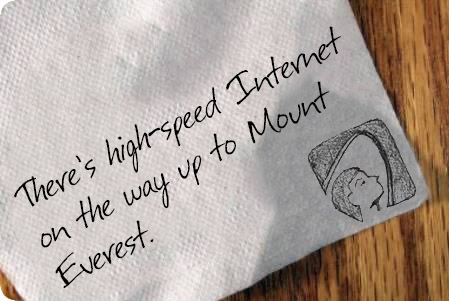 There's high-speed Internet
on the way up to Mount
Everest.